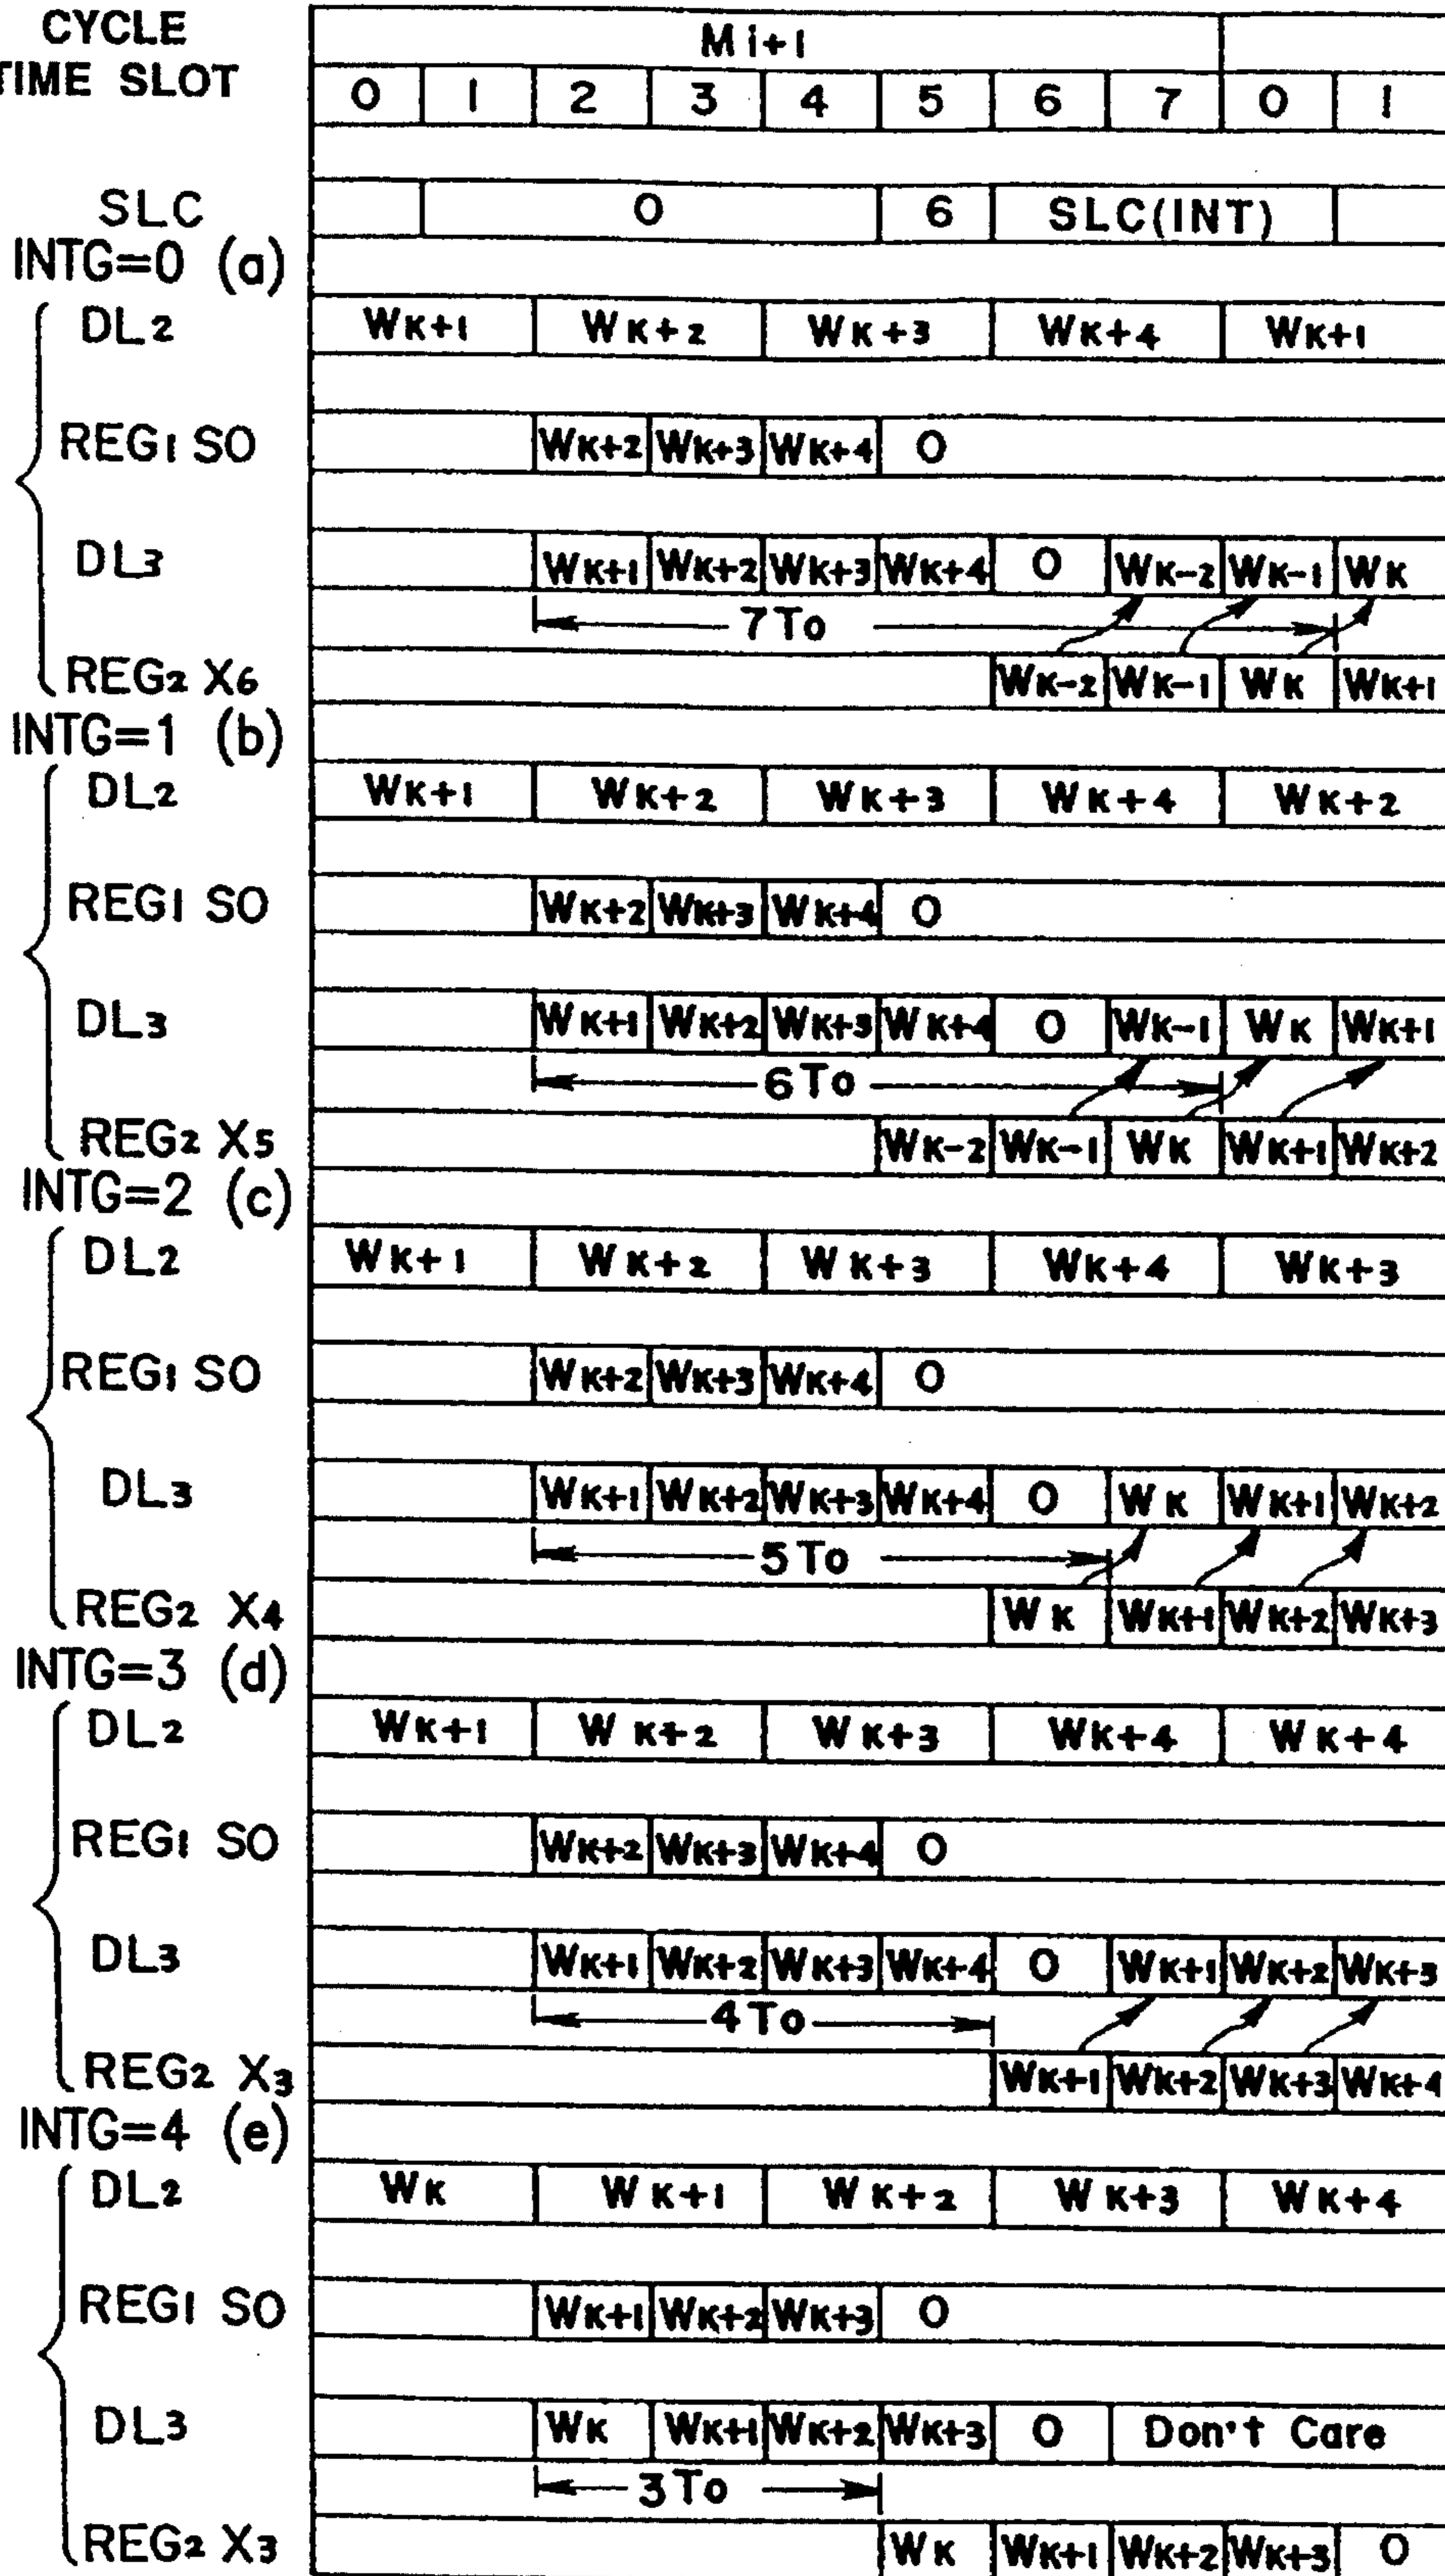 CYCLE Mi+1
TIME SLOT 0 1 2 3 4 5 6 7 0 1
SLC 0 6 SLC(INT)
INTG=0 (a)
DL2 WK+1 WK+2 WK+3 WK+4 WK+1
REG1 SO WK+2 WK+3 WK+4 0
DL3 WK+1 WK+2 WK+3 WK+4 0 WK-2 WK-1 WK
7To
REG2 X6 WK-2 WK-1 WK WK+1
INTG=1 (b)
DL2 WK+1 WK+2 WK+3 WK+4 WK+2
REG1 SO WK+2 WK+3 WK+4 0
DL3 WK+1 WK+2 WK+3 WK+4 0 WK-1 WK WK+1
6To
REG2 X5 WK-2 WK-1 WK WK+1 WK+2
INTG=2 (c)
DL2 WK+1 WK+2 WK+3 WK+4 WK+3
REG1 SO WK+2 WK+3 WK+4 0
DL3 WK+1 WK+2 WK+3 WK+4 0 WK WK+1 WK+2
5To
REG2 X4 WK WK+1 WK+2 WK+3
INTG=3 (d)
DL2 WK+1 WK+2 WK+3 WK+4 WK+4
REG1 SO WK+2 WK+3 WK+4 0
DL3 WK+1 WK+2 WK+3 WK+4 0 WK+1 WK+2 WK+3
4To
REG2 X3 WK+1 WK+2 WK+3 WK+4
INTG=4 (e)
DL2 WK WK+1 WK+2 WK+3 WK+4
REG1 SO WK+1 WK+2 WK+3 0
DL3 WK WK+1 WK+2 WK+3 0 Don't Care
3To
REG2 X3 WK WK+1 WK+2 WK+3 0